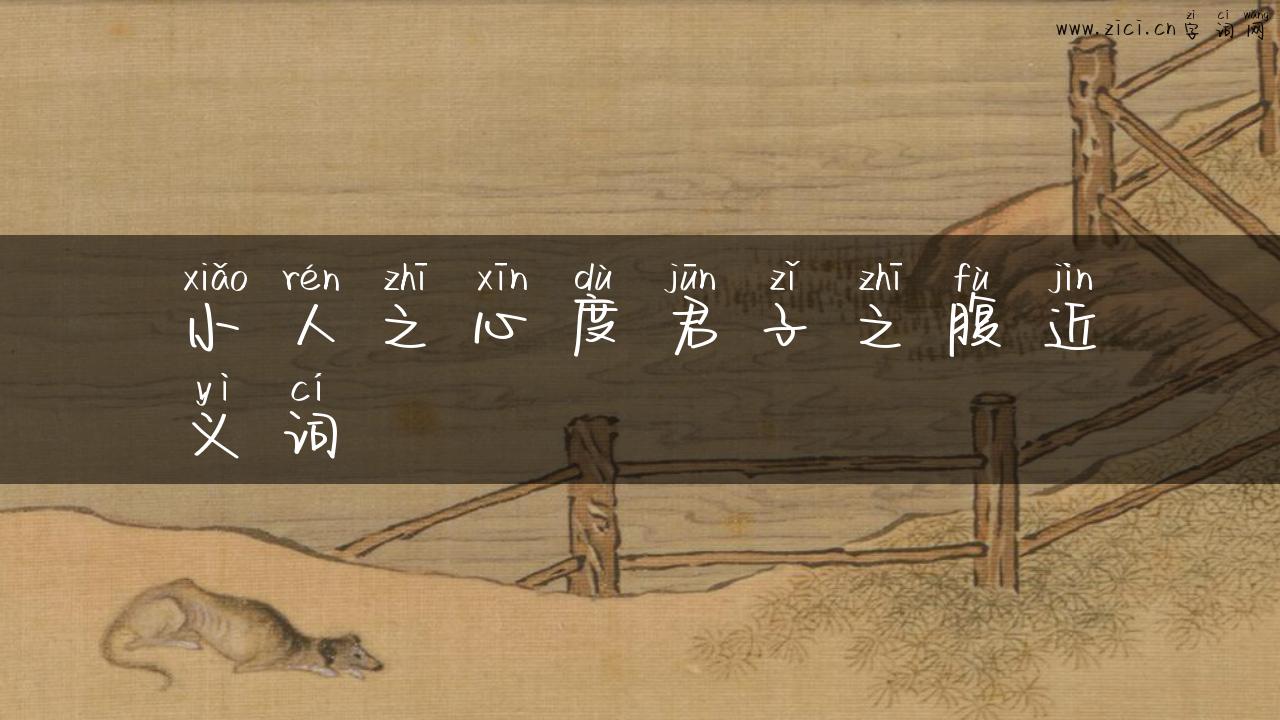 zi ci wang
www.zici.cn 字词网
xiǎo rén zhī xīn dù jūn zǐ zhī fù jìn
小人之心度君子之腹近
yì cí
义词